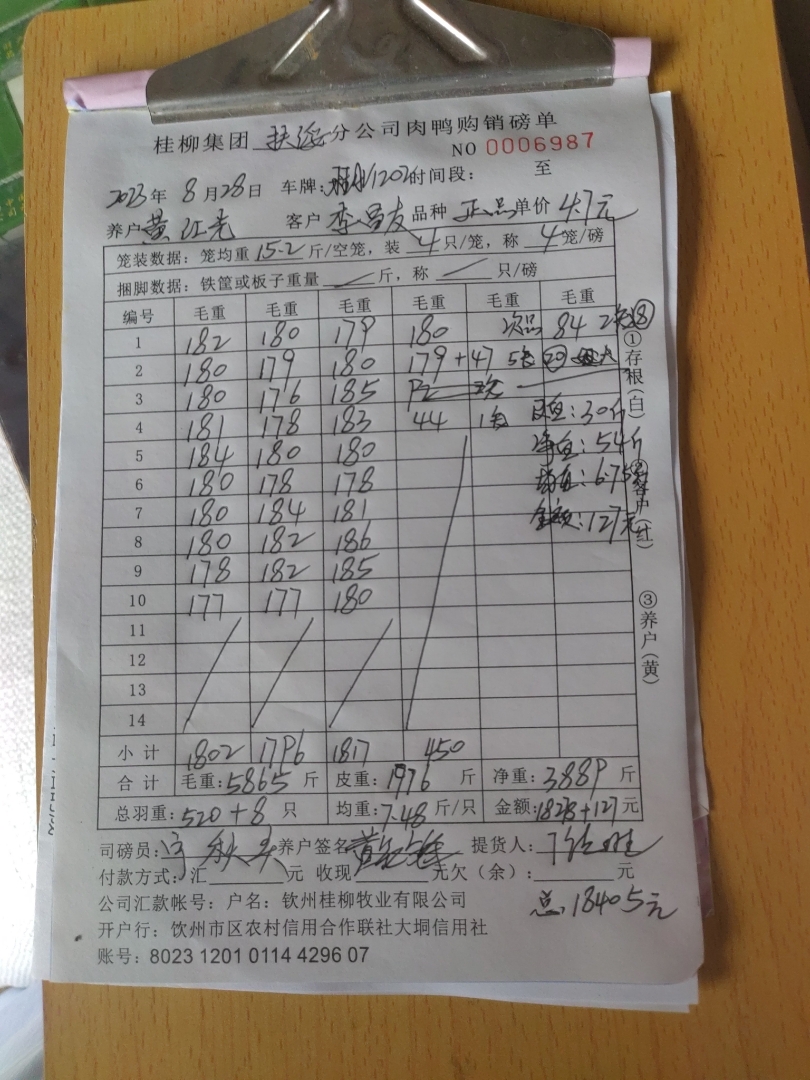 桂柳集团 扶绥 分公司肉鸭购销磅单
NO 0006987
2023年 8月28日 车牌: 时间段: 至
养户 黄红亮 客户 李昌友 品种 正品 单价 4.7元
笼装数据: 笼均重 15.2 斤/空笼, 装 4 只/笼, 称 4 笼/磅
捆脚数据: 铁筐或板子重量 斤, 称 只/磅
编号 毛重 毛重 毛重 毛重 毛重 毛重
1 182 180 179 180 次品 84
2 180 179 180 179+47
3 180 176 185
4 181 178 183 44 皮重: 30斤
5 184 180 180 净重: 54斤
6 180 178 178 均重: 6.75
7 180 184 181 金额: 127元
8 180 182 186
9 178 182 185
10 177 177 180
11
12
13
14
小计 1802 1796 1817 450
合计 毛重: 5865 斤 皮重: 1976 斤 净重: 3889 斤
总羽重: 520+8 只 均重: 7.48 斤/只 金额: 18278+127 元
司磅员: 养户签名 提货人:
付款方式: 汇 元 收现 元欠(余): 元
公司汇款帐号: 户名: 钦州桂柳牧业有限公司
总 18405元
开户行: 饮州市区农村信用合作联社大垌信用社
账号: 8023 1201 0114 4296 07
①存根(白)
②客户(红)
③养户(黄)